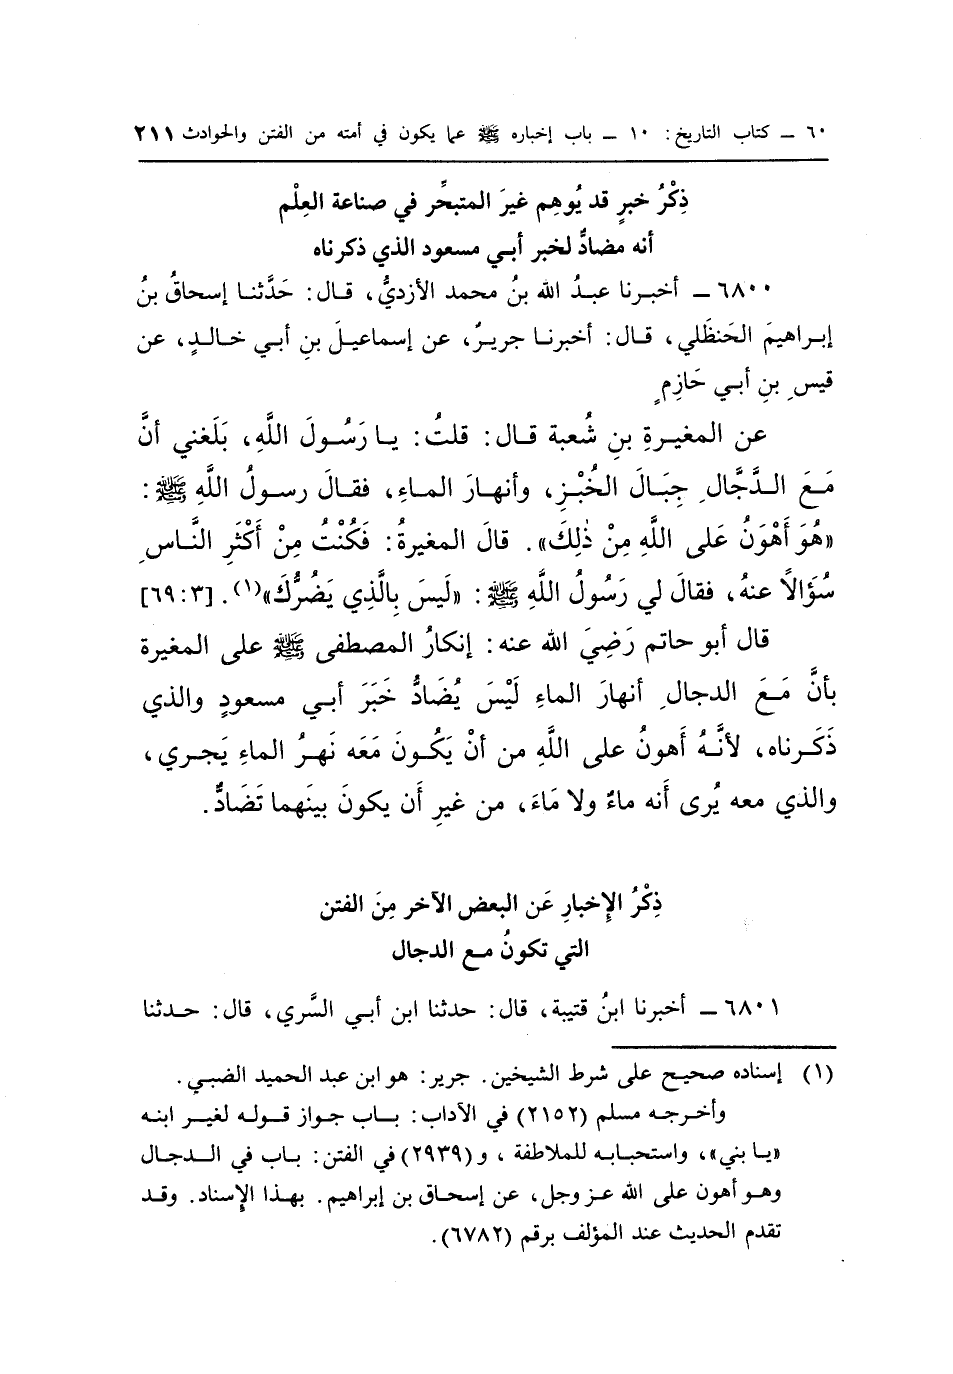 ٦٠ ــ كتاب التاريخ: ١٠ ــ باب إخباره ﷺ عما يكون في أمته من الفتن والحوادث ٢١١
ذِكْرُ خبرٍ قد يُوهِم غيرَ المتبحِّر في صناعة العِلْم
أنه مضادٌّ لخبر أبـي مسعود الذي ذكرناه
٦٨٠٠ ــ أخبرنا عبدُ الله بنُ محمد الأزديُّ، قال: حَدَّثنا إسحاقُ بنُ
إبراهيمَ الحَنظَلي، قال: أخبرنا جريرٌ، عن إسماعيلَ بنِ أبي خالدٍ، عن
قيسِ بنِ أبـي حَازِمٍ
عن المغيرةِ بنِ شُعبة قال: قلتُ: يا رَسُولَ اللَّهِ، بَلَغني أنَّ
مَعَ الدَّجَّالِ جِبَالَ الخُبْزِ، وأنهارَ الماءِ، فقالَ رسولُ اللَّهِ ﷺ:
«هُوَ أَهْوَنُ عَلى اللَّهِ مِنْ ذٰلِكَ». قالَ المغيرةُ: فَكُنْتُ مِنْ أَكْثَرِ النَّاسِ
سُؤَالاً عنهُ، فقالَ لي رَسُولُ اللَّهِ ﷺ: «لَيسَ بِالَّذِي يَضُرُّكَ»(١). [٣: ٦٩]
قال أبو حاتم رَضِيَ الله عنه: إنكارُ المصطفى ﷺ على المغيرة
بأنَّ مَعَ الدجالِ أنهارَ الماءِ لَيْسَ يُضَادُّ خَبَرَ أبـي مسعودٍ والذي
ذَكَرناه، لأنَّهُ أَهونُ على اللَّهِ من أنْ يَكُونَ مَعَه نَهرُ الماءِ يَجري،
والذي معه يُرى أَنه ماءٌ ولا مَاءَ، من غيرِ أَن يكونَ بينَهما تَضَادٌّ.
ذِكْرُ الإِخبارِ عَن البعض الآخر مِنَ الفتن
التي تكونُ مـع الدجال
٦٨٠١ ــ أخبرنا ابنُ قتيبة، قال: حدثنا ابن أبـي السَّري، قال: حدثنا
(١) إسناده صحيح على شرط الشيخين. جرير: هو ابن عبد الحميد الضبـي.
وأخرجه مسلم (٢١٥٢) في الآداب: باب جواز قوله لغير ابنه
«يا بني»، واستحبابه للملاطفة، و(٢٩٣٩) في الفتن: باب في الدجال
وهو أهون على الله عز وجل، عن إسحاق بن إبراهيم. بهذا الإِسناد. وقد
تقدم الحديث عند المؤلف برقم (٦٧٨٢).